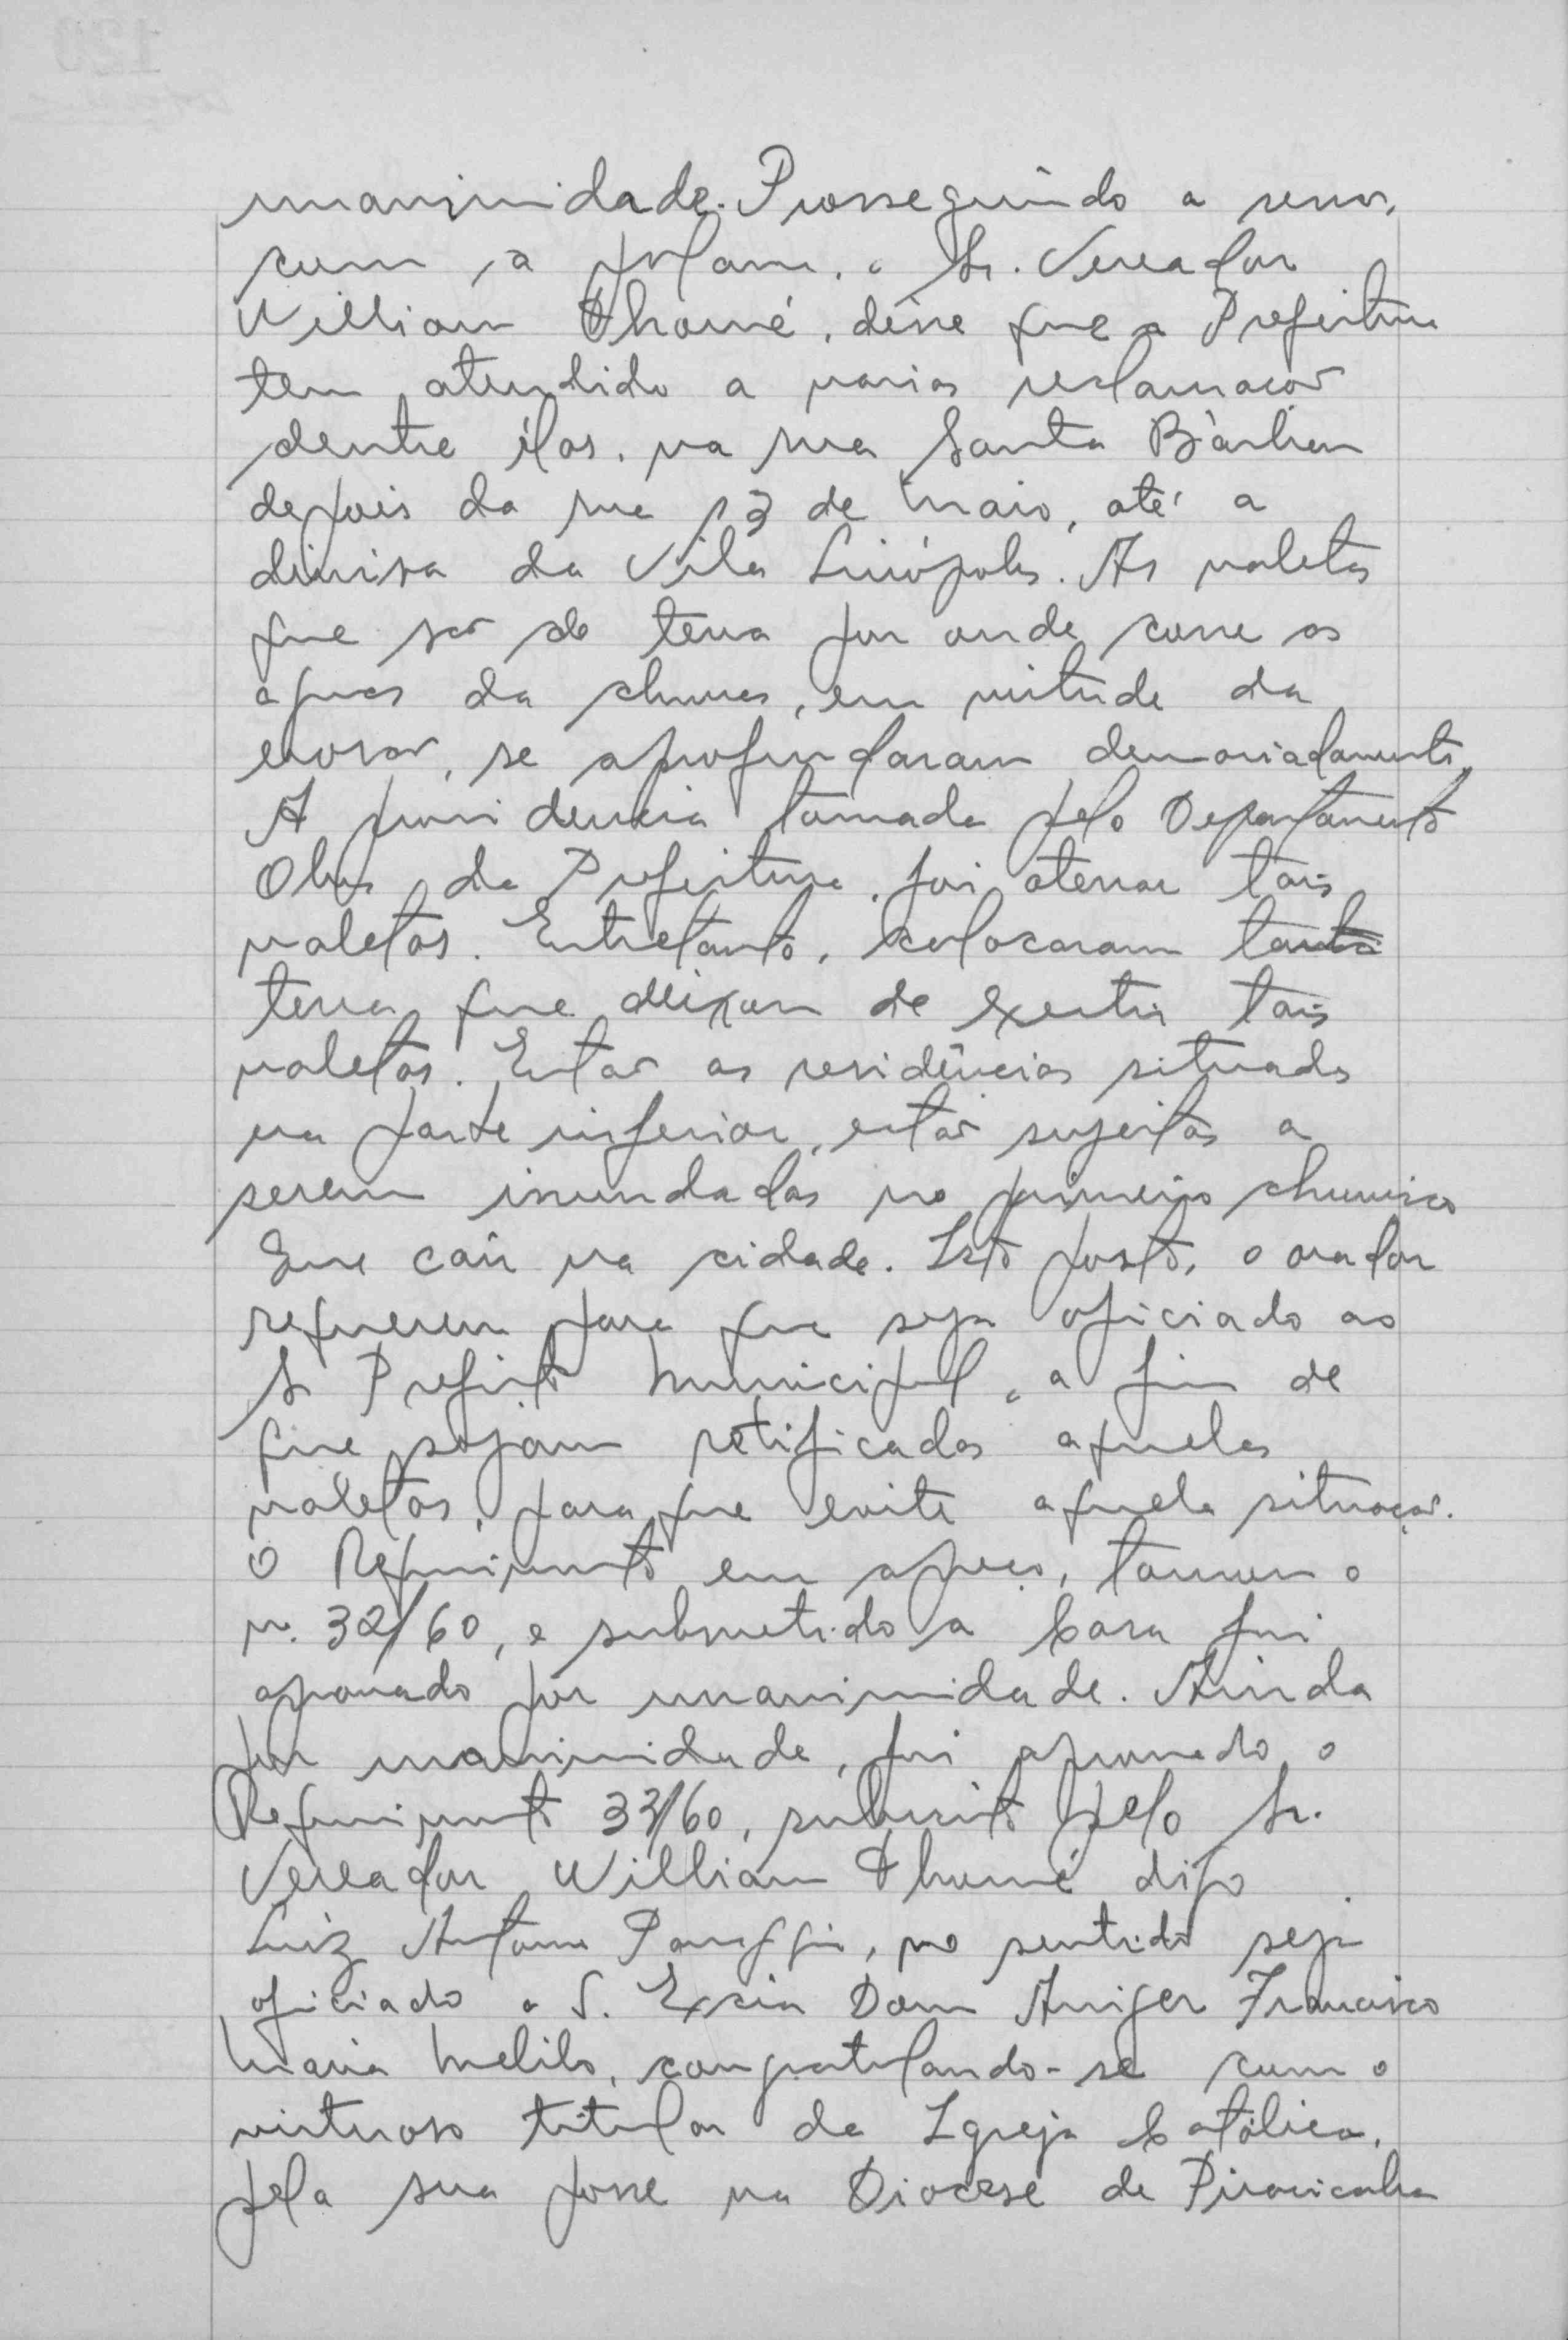 unanimidade. Prosseguindo a sessão,
com a palavra, o Sr. Vereador
William Thomé, disse que a Prefeitura
tem atendido a varias reclamações
dentre élas, na rua Santa Bárbara
depois da rua 13 de maio, até a
divisa da Vila Linópolis. As valetas
que são de terra por onde corre as
aguas da chuvas, em virtude da
erosão, se aprofundaram demasiadamente,
A providencia tomada pelo Departamento
Obras da Prefeitura, foi aterrar tais
valetas. Entretanto, colocaram tanta
terra que deixam de existir tais
valetas. Então as residências situadas
na parte inferior, estão sujeitas a
serem inundadas no primeiro chuvisco
Que caír na cidade. Isto posto, o orador
requereu para que seja oficiado ao
Sr Prefeito Municipal, a fim de
que sejam retificadas aquelas
valetas, para que evite aquela situação.
O Requerimento em apreço, tomou o
n. 32/60, e submetido a Casa foi
aprovado por unanimidade. Ainda
por unanimidade, foi aprovado o
Requerimento 33/60, subscrito pelo Sr.
Vereador William Thomé digo
Luiz Antonio Panaggio, no sentido seja
oficiado a S. Excia Dom Aniger Francisco
Maria Melilo, congratulando-se com o
virtuoso titular da Igreja Católica,
pela sua posse na Diocese de Piracicaba
120